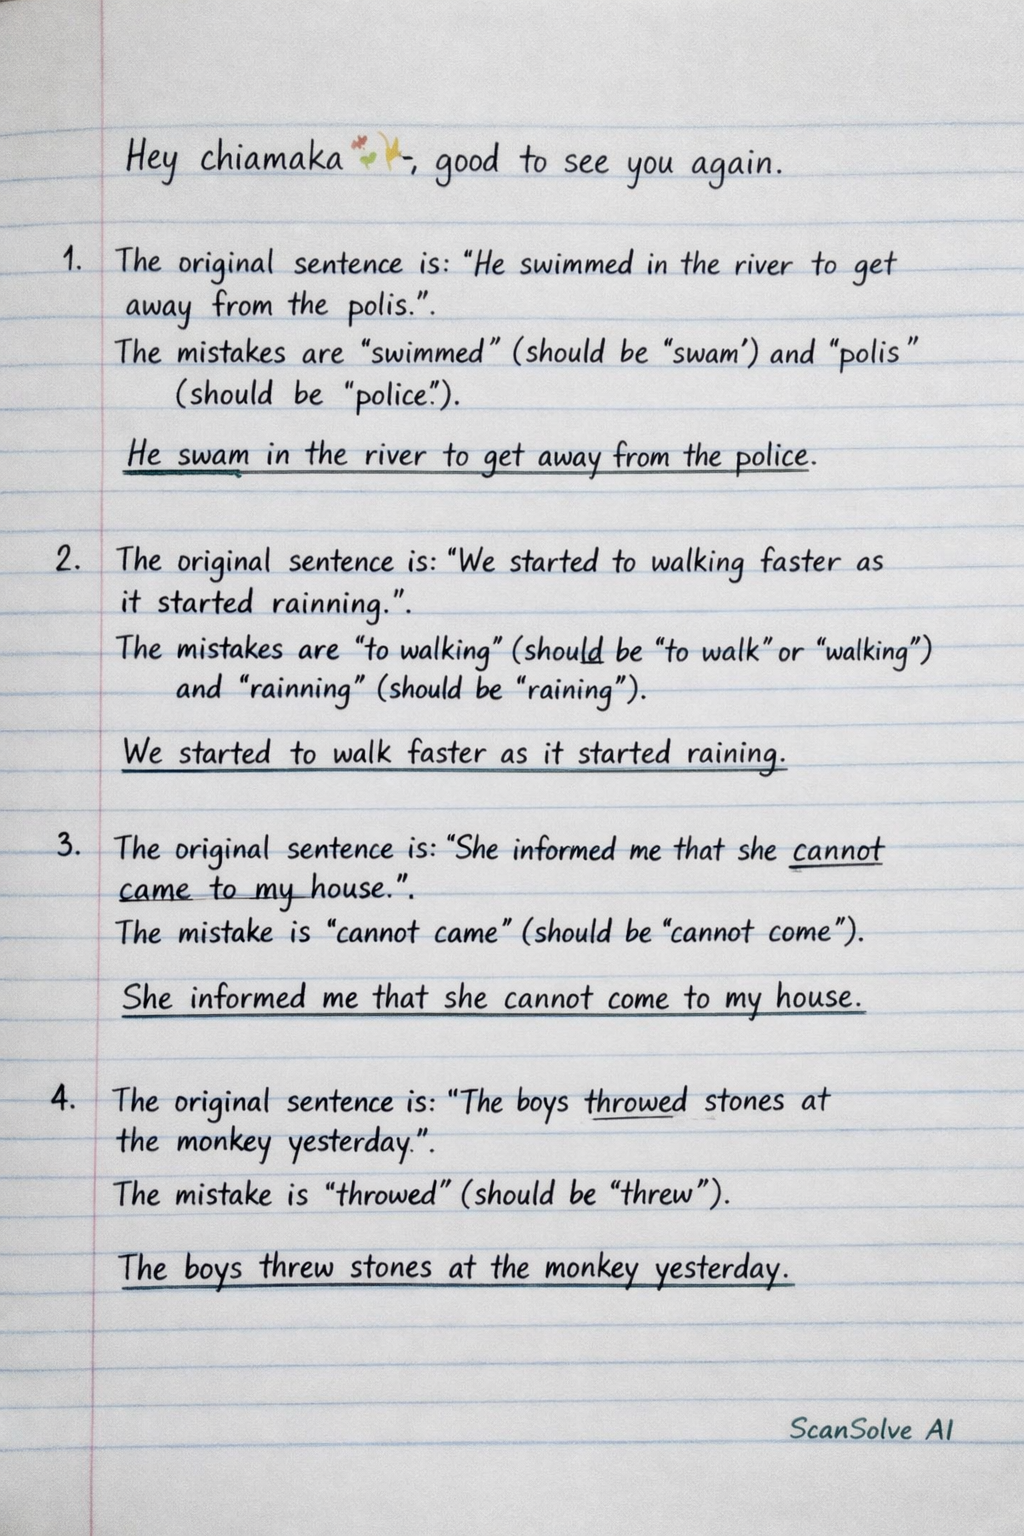 Hey chiamaka -, good to see you again.
1. The original sentence is: “He swimmed in the river to get
away from the polis.”.
The mistakes are “swimmed” (should be “swam’) and “polis”
(should be “police.”).
He swam in the river to get away from the police.
2. The original sentence is: “We started to walking faster as
it started rainning.”.
The mistakes are “to walking” (should be “to walk” or “walking”)
and “rainning” (should be “raining”).
We started to walk faster as it started raining.
3. The original sentence is: “She informed me that she cannot
came to my house.”.
The mistake is “cannot came” (should be “cannot come”).
She informed me that she cannot come to my house.
4. The original sentence is: “The boys throwed stones at
the monkey yesterday.”.
The mistake is “throwed” (should be “threw”).
The boys threw stones at the monkey yesterday.
ScanSolve AI